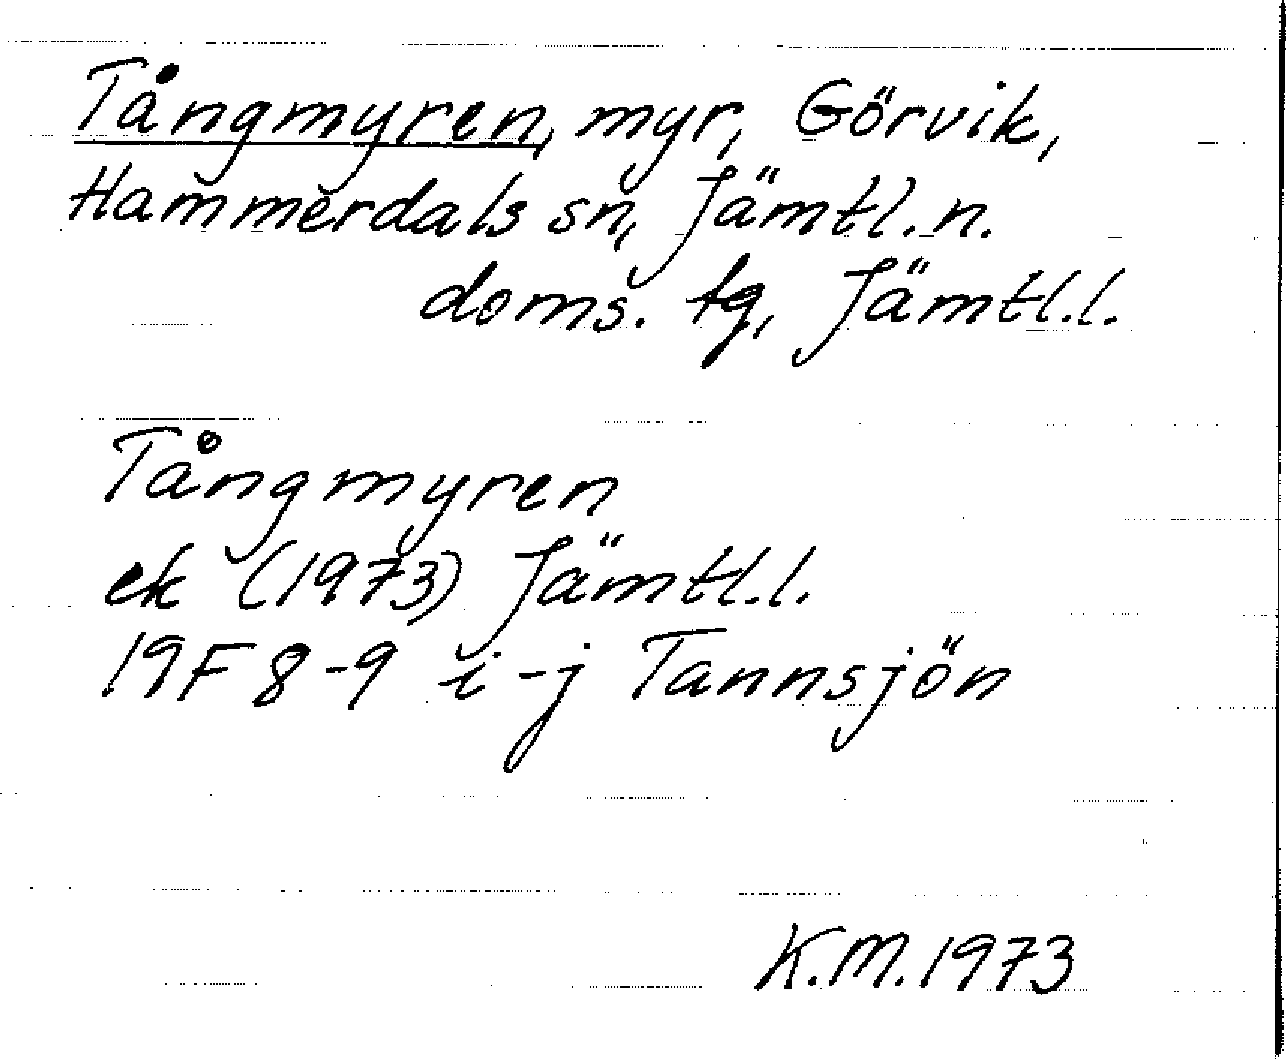 Tångmyren, myr, Görvik,
Hammerdals sn, Jämtl. n.
doms. tg, Jämtl. l.
Tångmyren
ek (1973) Jämtl. l.
19F 8-9 i-j Tannsjön
K.M. 1973